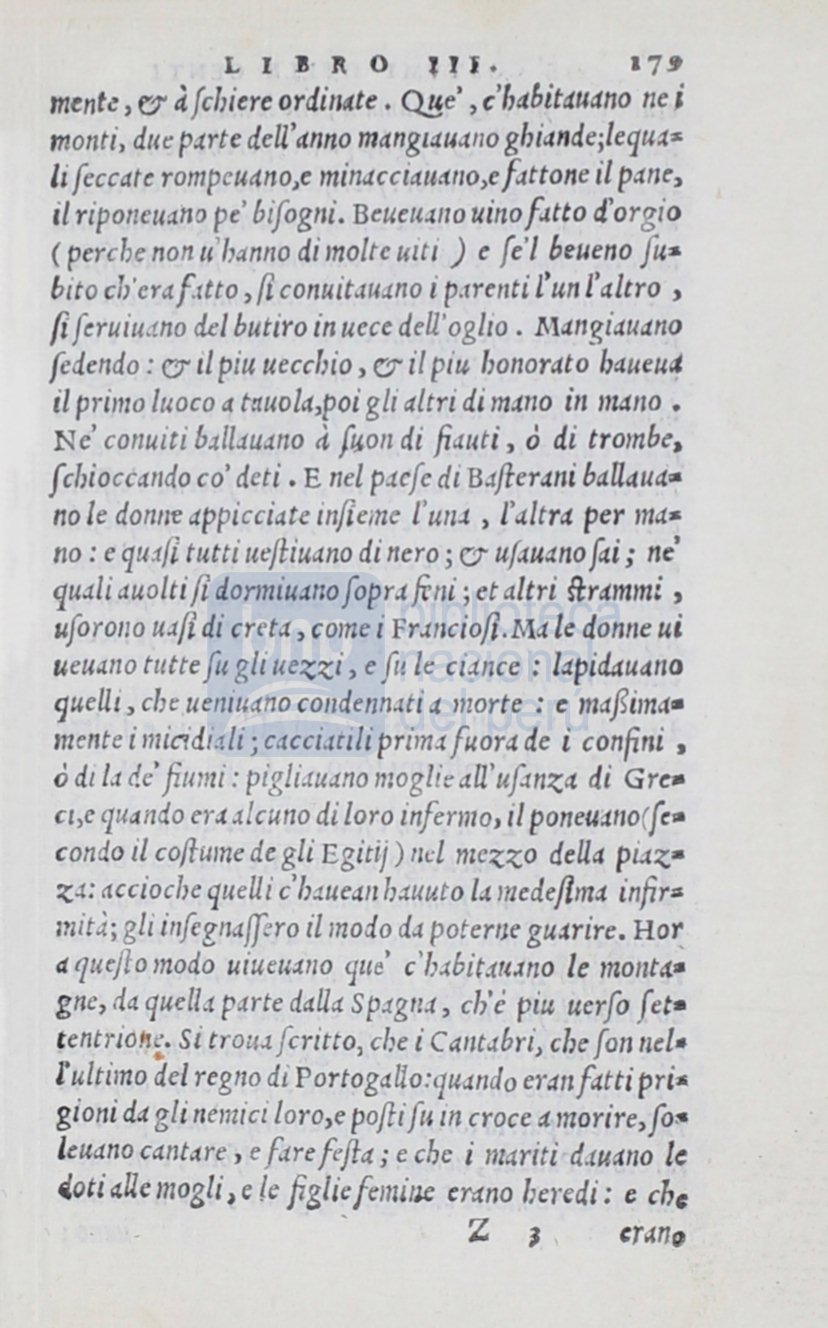 LIBRO III. 179
mente, & à ſchiere ordinate. Que', c'habitauano ne i
monti, due parte dell'anno mangiauano ghiande; lequa=
li ſeccate rompeuano, e minacciauano, e fattone il pane,
il riponeuano pe' biſogni. Beueuano uino fatto d'orgio
(perche non u'hanno di molte uiti) e ſe'l beueno ſu=
bito ch'era fatto, ſi conuitauano i parenti l'un l'altro,
ſi ſeruiuano del butiro in uece dell'oglio. Mangiauano
ſedendo: & il piu uecchio, & il piu honorato haueua
il primo luoco a tauola, poi gli altri di mano in mano.
Ne' conuiti ballauano à ſuon di fiauti, ò di trombe,
ſchioccando co' deti. E nel paeſe di Baſterani ballaua=
no le donne appicciate inſieme l'una, l'altra per ma=
no: e quaſi tutti ueſtiuano di nero; & uſauano ſai; ne'
quali auolti ſi dormiuano ſopra fieni; et altri ſtrammi,
uſorono uaſi di creta, come i Francioſi. Ma le donne ui
ueuano tutte ſu gli uezzi, e ſu le ciance: lapidauano
quelli, che ueniuano condennati a morte: e maßima=
mente i micidiali; cacciatili prima fuora de i confini,
ò di la de' fiumi: pigliauano moglie all'uſanza di Gre=
ci, e quando era alcuno di loro infermo, il poneuano (ſe=
condo il coſtume de gli Egitij) nel mezzo della piaz=
za: accioche quelli c'hauean hauuto la medeſima infir=
mità; gli inſegnaſſero il modo da poterne guarire. Hor
a queſto modo uiueuano que' c'habitauano le monta=
gne, da quella parte dalla Spagna, ch'è piu uerſo ſet=
tentrione. Si troua ſcritto, che i Cantabri, che ſon nel=
l'ultimo del regno di Portogallo: quando eran fatti pri=
gioni da gli nemici loro, e poſti ſu in croce a morire, ſo=
leuano cantare, e fare feſta; e che i mariti dauano le
doti alle mogli, e le figlie femine erano heredi: e che
Z 3 erano
bnp biblioteca
nacional
del perú